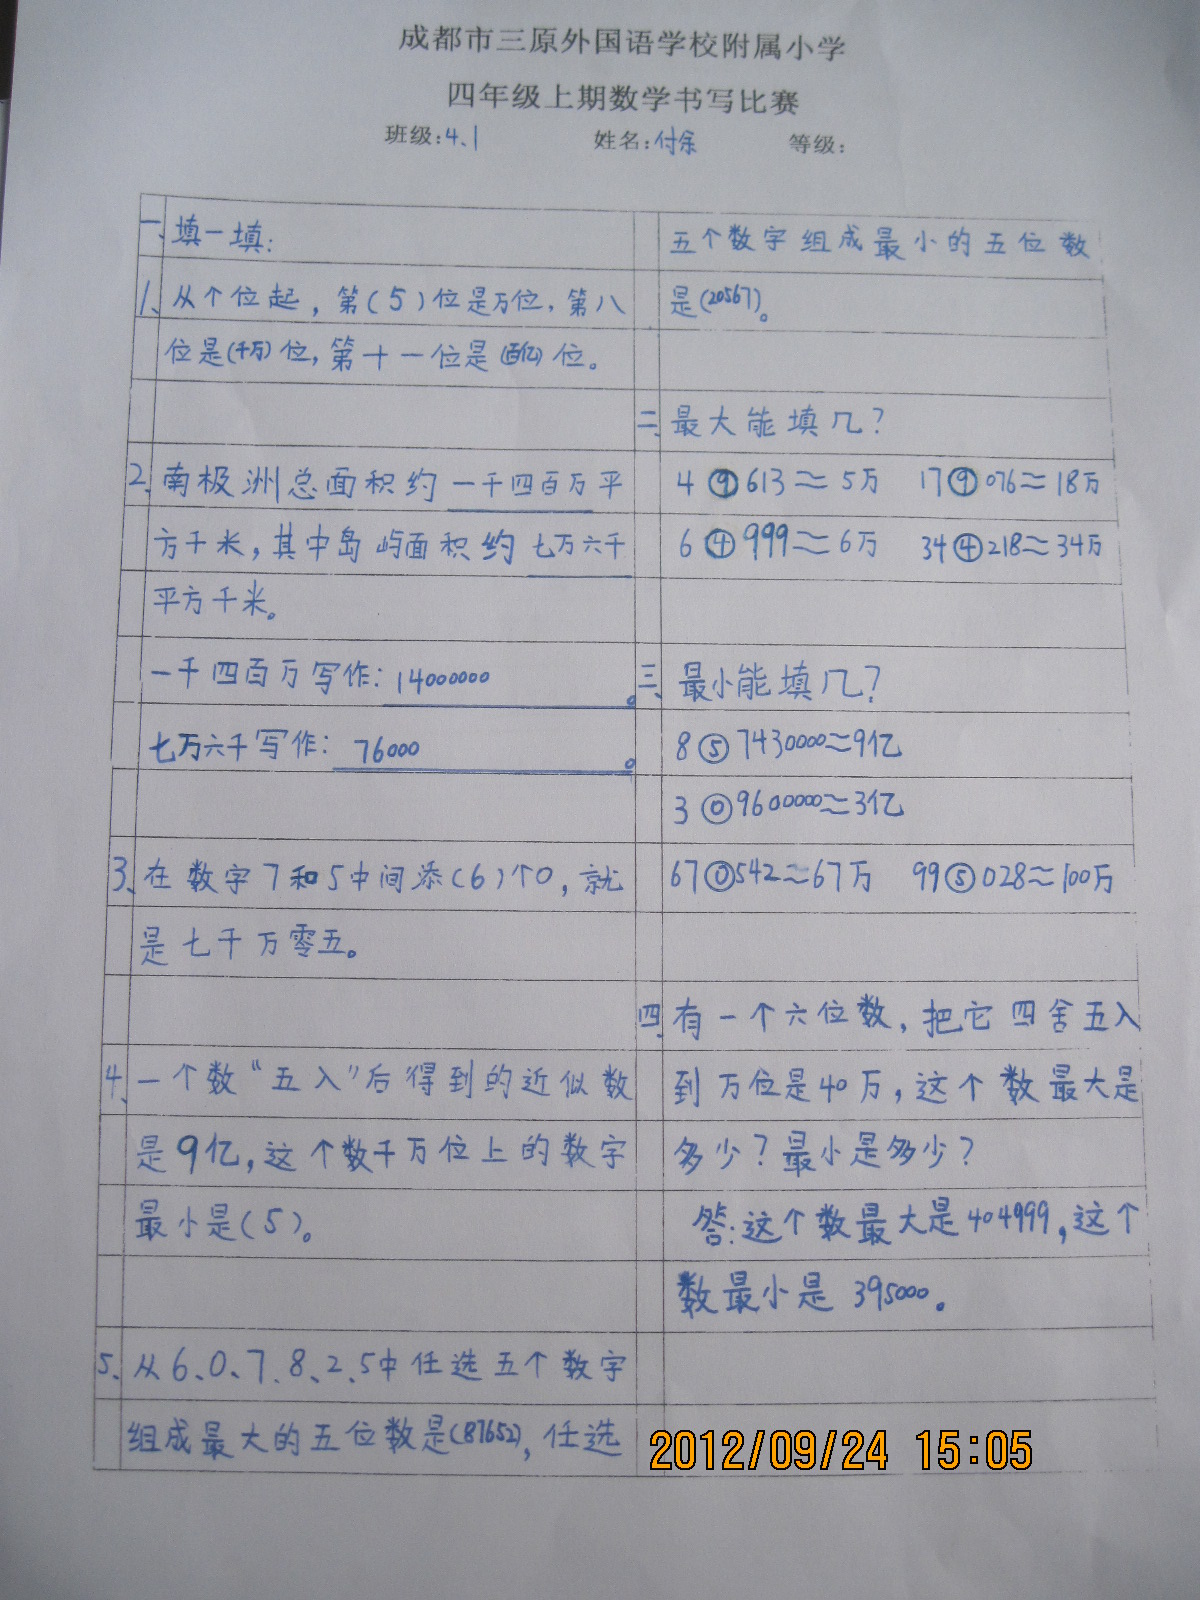 成都市三原外国语学校附属小学
四年级上期数学书写比赛
班级:4、1 姓名:付余 等级:
一、填一填:
1、从个位起，第(5)位是万位，第八
位是(千万)位，第十一位是(百亿)位。
2、南极洲总面积约一千四百万平
方千米，其中岛屿面积约七万六千
平方千米。
一千四百万写作:14000000。
七万六千写作:76000。
3、在数字7和5中间添(6)个0，就
是七千万零五。
4、一个数“五入”后得到的近似数
是9亿，这个数千万位上的数字
最小是(5)。
5、从6、0、7、8、2、5中任选五个数字
组成最大的五位数是(87652)，任选
五个数字组成最小的五位数
是(20567)。
二、最大能填几?
4⑨613≈5万 17⑨076≈18万
6④999≈6万 34④218≈34万
三、最小能填几?
8⑤7430000≈9亿
3⓪9600000≈3亿
67⓪542≈67万 99⑤028≈100万
四、有一个六位数，把它四舍五入
到万位是40万，这个数最大是
多少?最小是多少?
答:这个数最大是404999，这个
数最小是395000。
2012/09/24 15:05